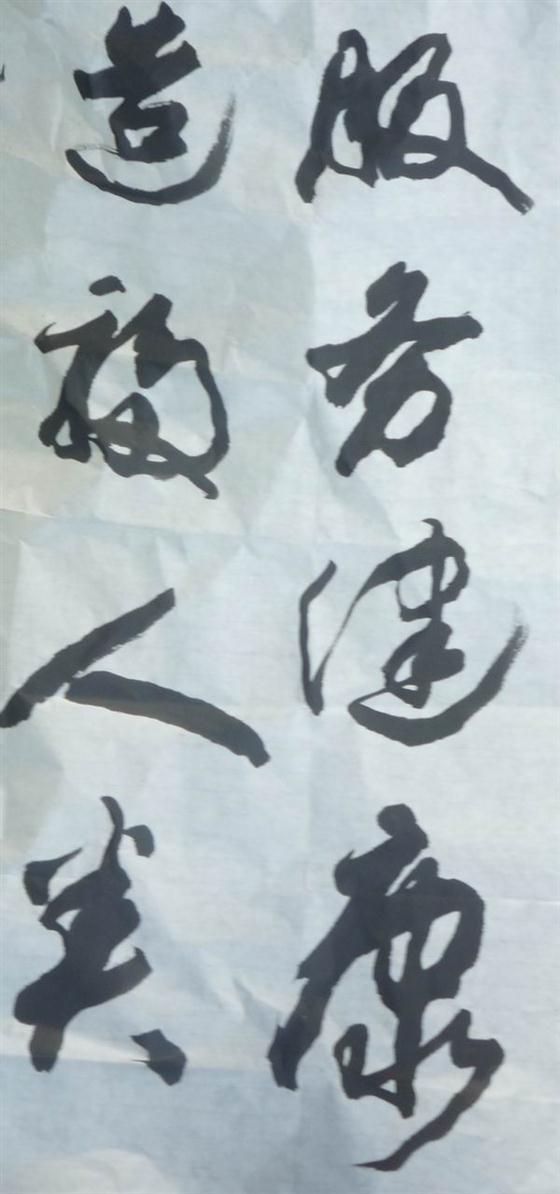 服务健康
造福人类